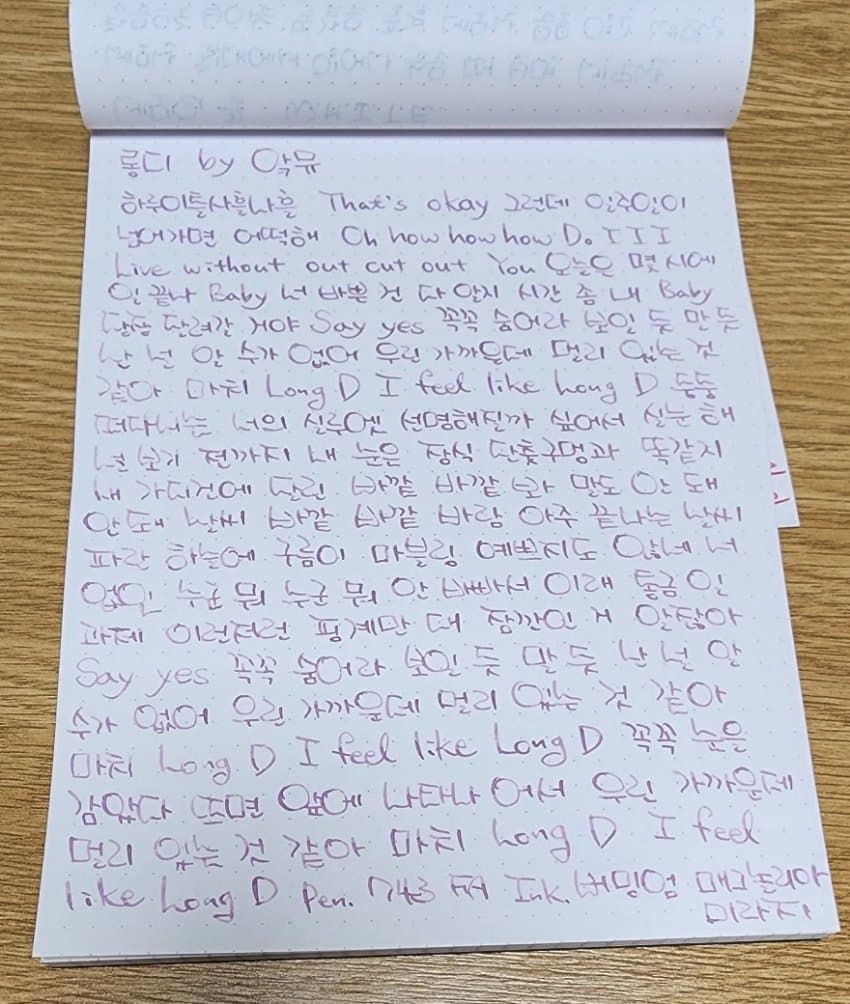 롱디 by 악뮤
하루이틀사흘나흘 That's okay 그런데 일주일이
넘어가면 어떡해 Oh how how how Do I I I
Live without out out out You 오늘은 몇 시에
일 끝나 Baby 너 바쁜 건 다 알지 시간 좀 내 Baby
당장 달려갈 거야 Say yes 꼭꼭 숨어라 보일 듯 말 듯
난 널 알 수가 없어 우린 가까운데 멀리 있는 것
같아 마치 Long D I feel like Long D 둥둥
떠다니는 너의 실루엣 선명해질까 싶어서 실눈 해
널 보기 전까지 내 눈은 장식 단춧구멍과 똑같지
내 가디건에 달린 바깥 바깥 봐 말도 안 돼
안돼 날씨 바깥 바깥 바람 아주 끝나는 날씨
파란 하늘에 구름이 마블링 예쁘지도 않네 너
없인 누군 뭐 누군 뭐 안 바빠서 이래 틀금 인
과제 이런저런 핑계만 대 잠깐인 거 알잖아
Say yes 꼭꼭 숨어라 보일 듯 말 듯 난 널 알
수가 없어 우린 가까운데 멀리 있는 것 같아
마치 Long D I feel like Long D 꼭꼭 눈을
감았다 뜨면 앞에 나타나 어서 우린 가까운데
멀리 있는 것 같아 마치 Long D I feel
like Long D Pen. 743 FA Ink. 버밍엄 매그놀리아
미라지